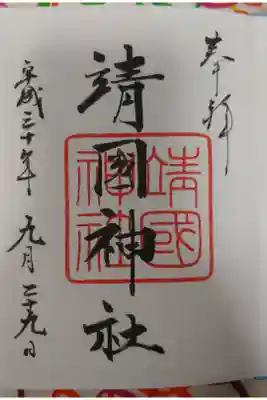 奉拝
靖國神社
靖國神社
平成三十年九月二十九日